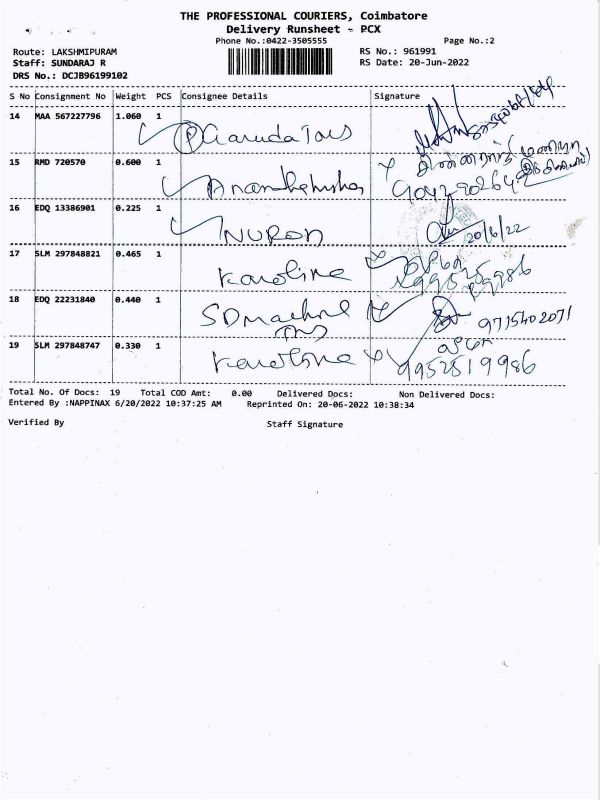 THE PROFESSIONAL COURIERS, Coimbatore
Delivery Runsheet - PCX
Phone No.:0422-3505555 Page No.:2
Route: LAKSHMIPURAM RS No.: 961991
Staff: SUNDARAJ R RS Date: 20-Jun-2022
DRS No.: DCJB96199102
S No Consignment No Weight PCS Consignee Details Signature
14 MAA 567227796 1.060 1
15 RMD 720570 0.600 1
16 EDQ 13386901 0.225 1 NURON 20/6/22
17 SLM 297848821 0.465 1 Karoline
18 EDQ 22231840 0.440 1 SD machine 9715402071
19 SLM 297848747 0.330 1 Karoline 9952519986
Total No. Of Docs: 19 Total COD Amt: 0.00 Delivered Docs: Non Delivered Docs:
Entered By :NAPPINAX 6/20/2022 10:37:25 AM Reprinted On: 20-06-2022 10:38:34
Verified By Staff Signature